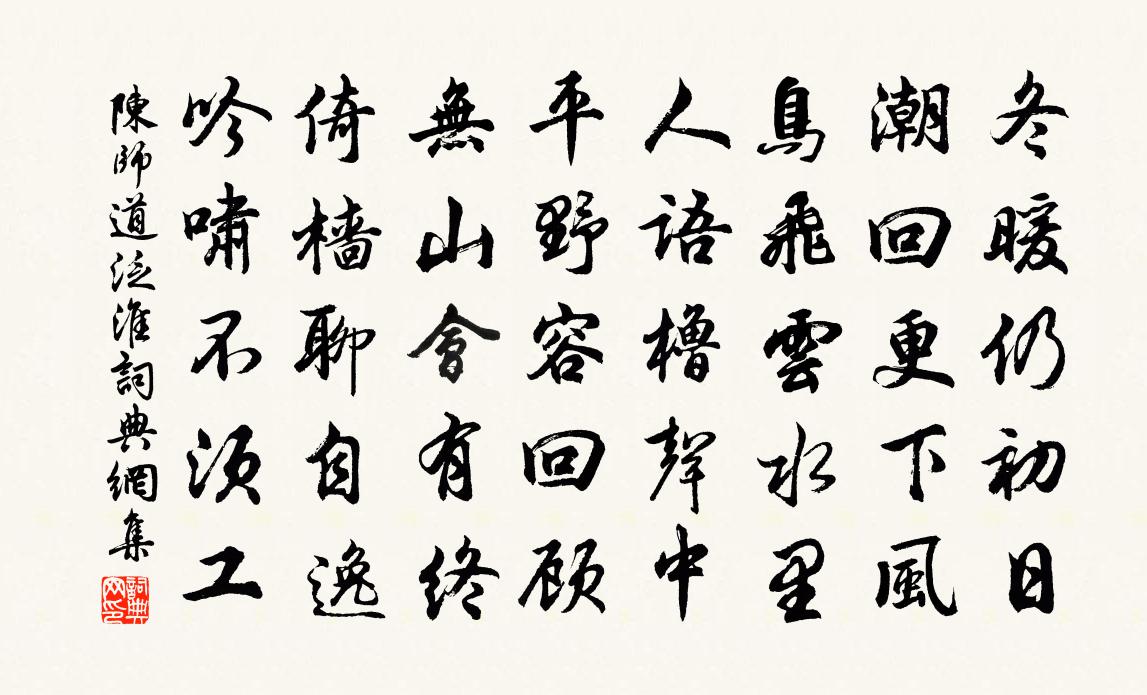 冬暖仍初日
潮回更下風
鳥飛雲水里
人語櫓聲中
平野容回顧
無山會有終
倚檣聊自逸
吟嘯不須工
陳師道泛淮詞典網集
詞典网印